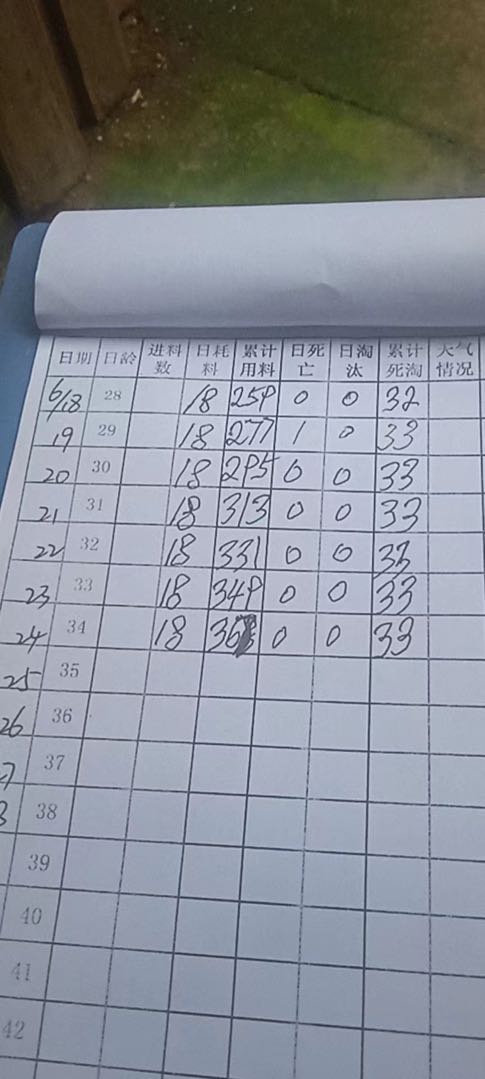 日期 日龄 进料数 日耗料 累计用料 日死亡 日淘汰 累计死淘 天气情况
6/18 28 18 259 0 0 32
19 29 18 277 1 0 33
20 30 18 295 0 0 33
21 31 18 313 0 0 33
22 32 18 331 0 0 33
23 33 18 349 0 0 33
24 34 18 0 0 33
25 35
26 36
37
38
39
40
41
42